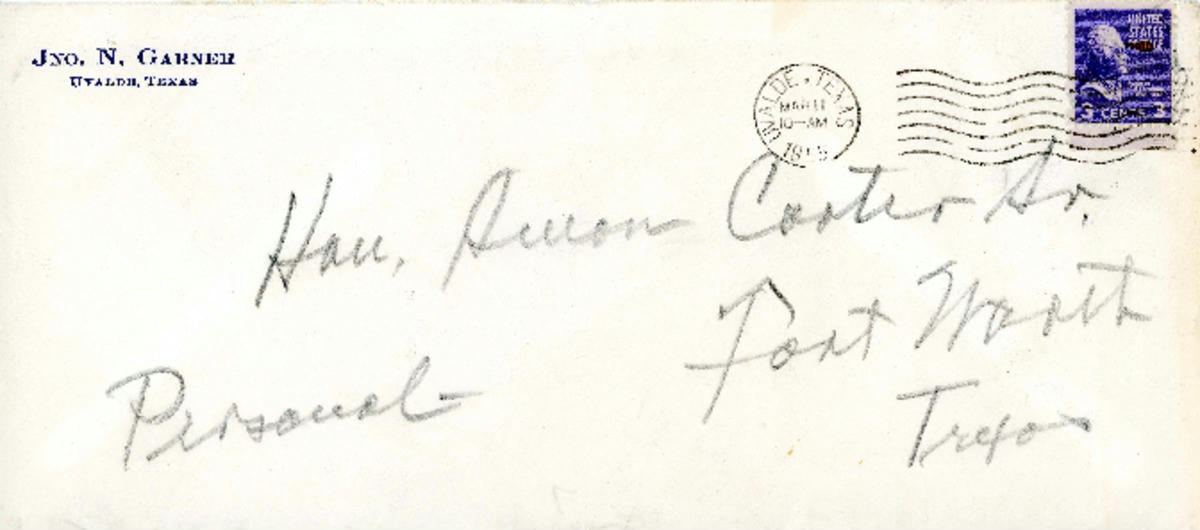 Jno. N. Garner
Uvalde, Texas
UNITED
STATES
3 CENTS 3
UVALDE, TEXAS
MAR 11
10-AM
Hon. Amon Carter Sr.
Fort Worth
Texas
Personal